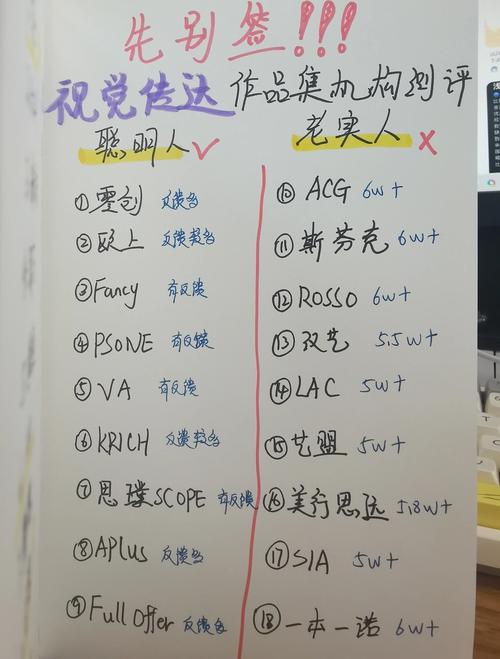 先别签!!!
视觉传达 作品集机构测评
聪明人 ✓
老实人 ×
①零创 反馈多
②欧上 反馈较多
③Fancy 有反馈
④PSONE 有反馈
⑤VA 有反馈
⑥KRICH 反馈较多
⑦思璞SCOPE 有反馈
⑧APlus 反馈多
⑨Full Offer 反馈多
⑩ACG 6w+
⑪斯芬克 6w+
⑫ROSSO 6w+
⑬双艺 5.5w+
⑭LAC 5w+
⑮艺盟 5w+
⑯美行思远 5.8w+
⑰SIA 5w+
⑱一本一诺 6w+